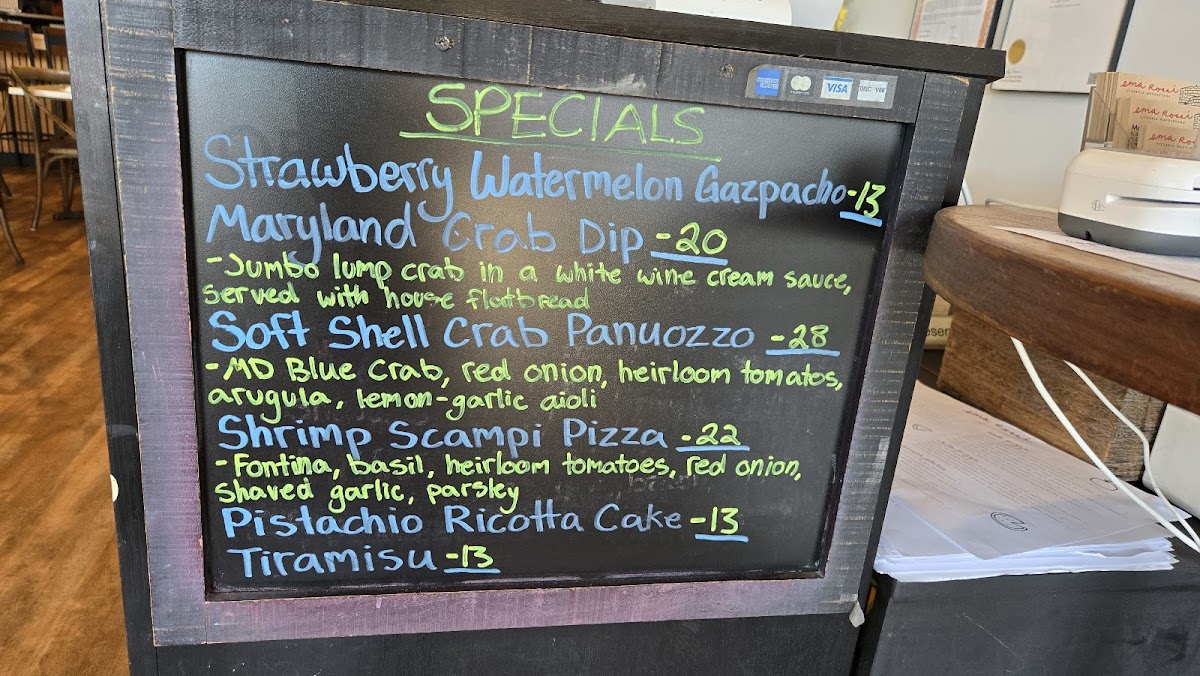 SPECIALS
VISA
DISCOVER
ema Rosel
ema Ro
Strawberry Watermelon Gazpacho -13
Maryland Crab Dip -20
-Jumbo lump crab in a white wine cream sauce,
served with house flatbread
Soft Shell Crab Panuozzo -28
-MD Blue Crab, red onion, heirloom tomatos,
arugula, lemon-garlic aioli
Shrimp Scampi Pizza -22
-Fontina, basil, heirloom tomatoes, red onion,
shaved garlic, parsley
Pistachio Ricotta Cake -13
Tiramisu -13